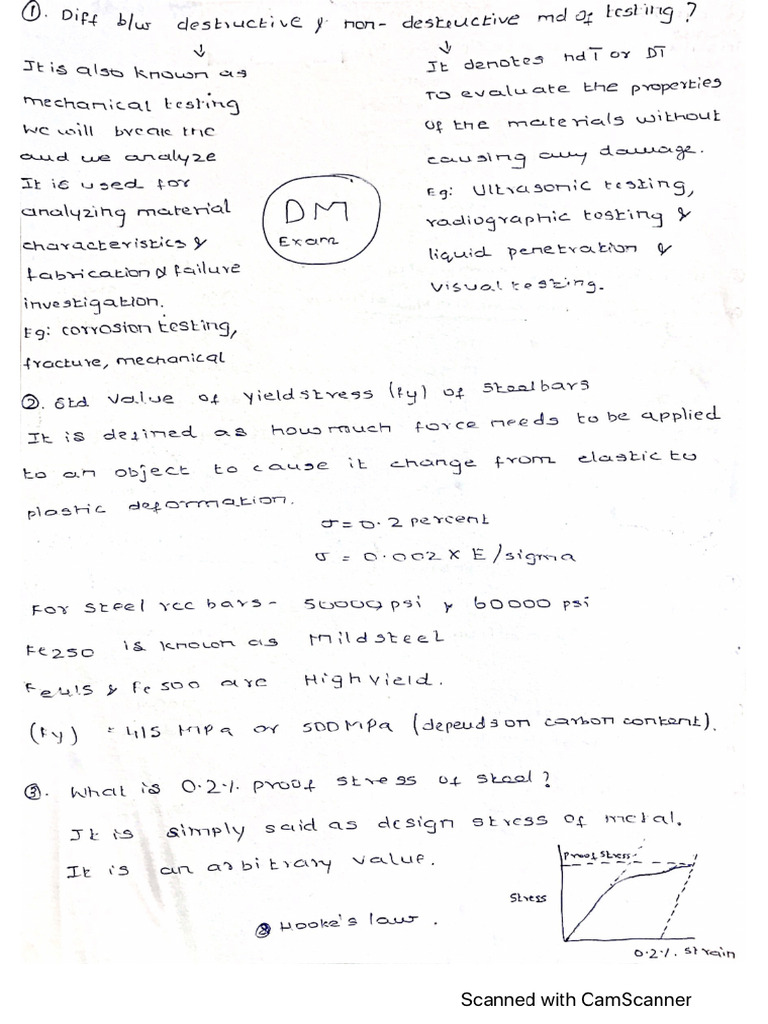 ①. Diff b/w destructive & non-destructive md of testing?
It is also known as
mechanical testing
we will break the
and we analyze
It is used for
analyzing material
characteristics &
fabrication & failure
investigation.
Eg: corrosion testing,
fracture, mechanical
DM
Exam
It denotes ndT or DT
To evaluate the properties
of the materials without
causing any damage.
Eg: Ultrasonic testing,
radiographic testing &
liquid penetration &
visual testing.
②. Std value of yield stress (fy) of steel bars
It is defined as how much force needs to be applied
to an object to cause it change from elastic to
plastic deformation.
σ = 0.2 percent
σ = 0.002 X E/sigma
For steel rcc bars - 50000 psi & 60000 psi
Fe250 is known as Mild steel
Fe415 & Fe 500 are High yield.
(fy) = 415 MPa or 500 MPa (depends on carbon content).
③. What is 0.2% proof stress of steel?
It is simply said as design stress of metal.
It is an arbitrary value.
Proof stress
Stress
0.2% strain
Hooke's law.
Scanned with CamScanner